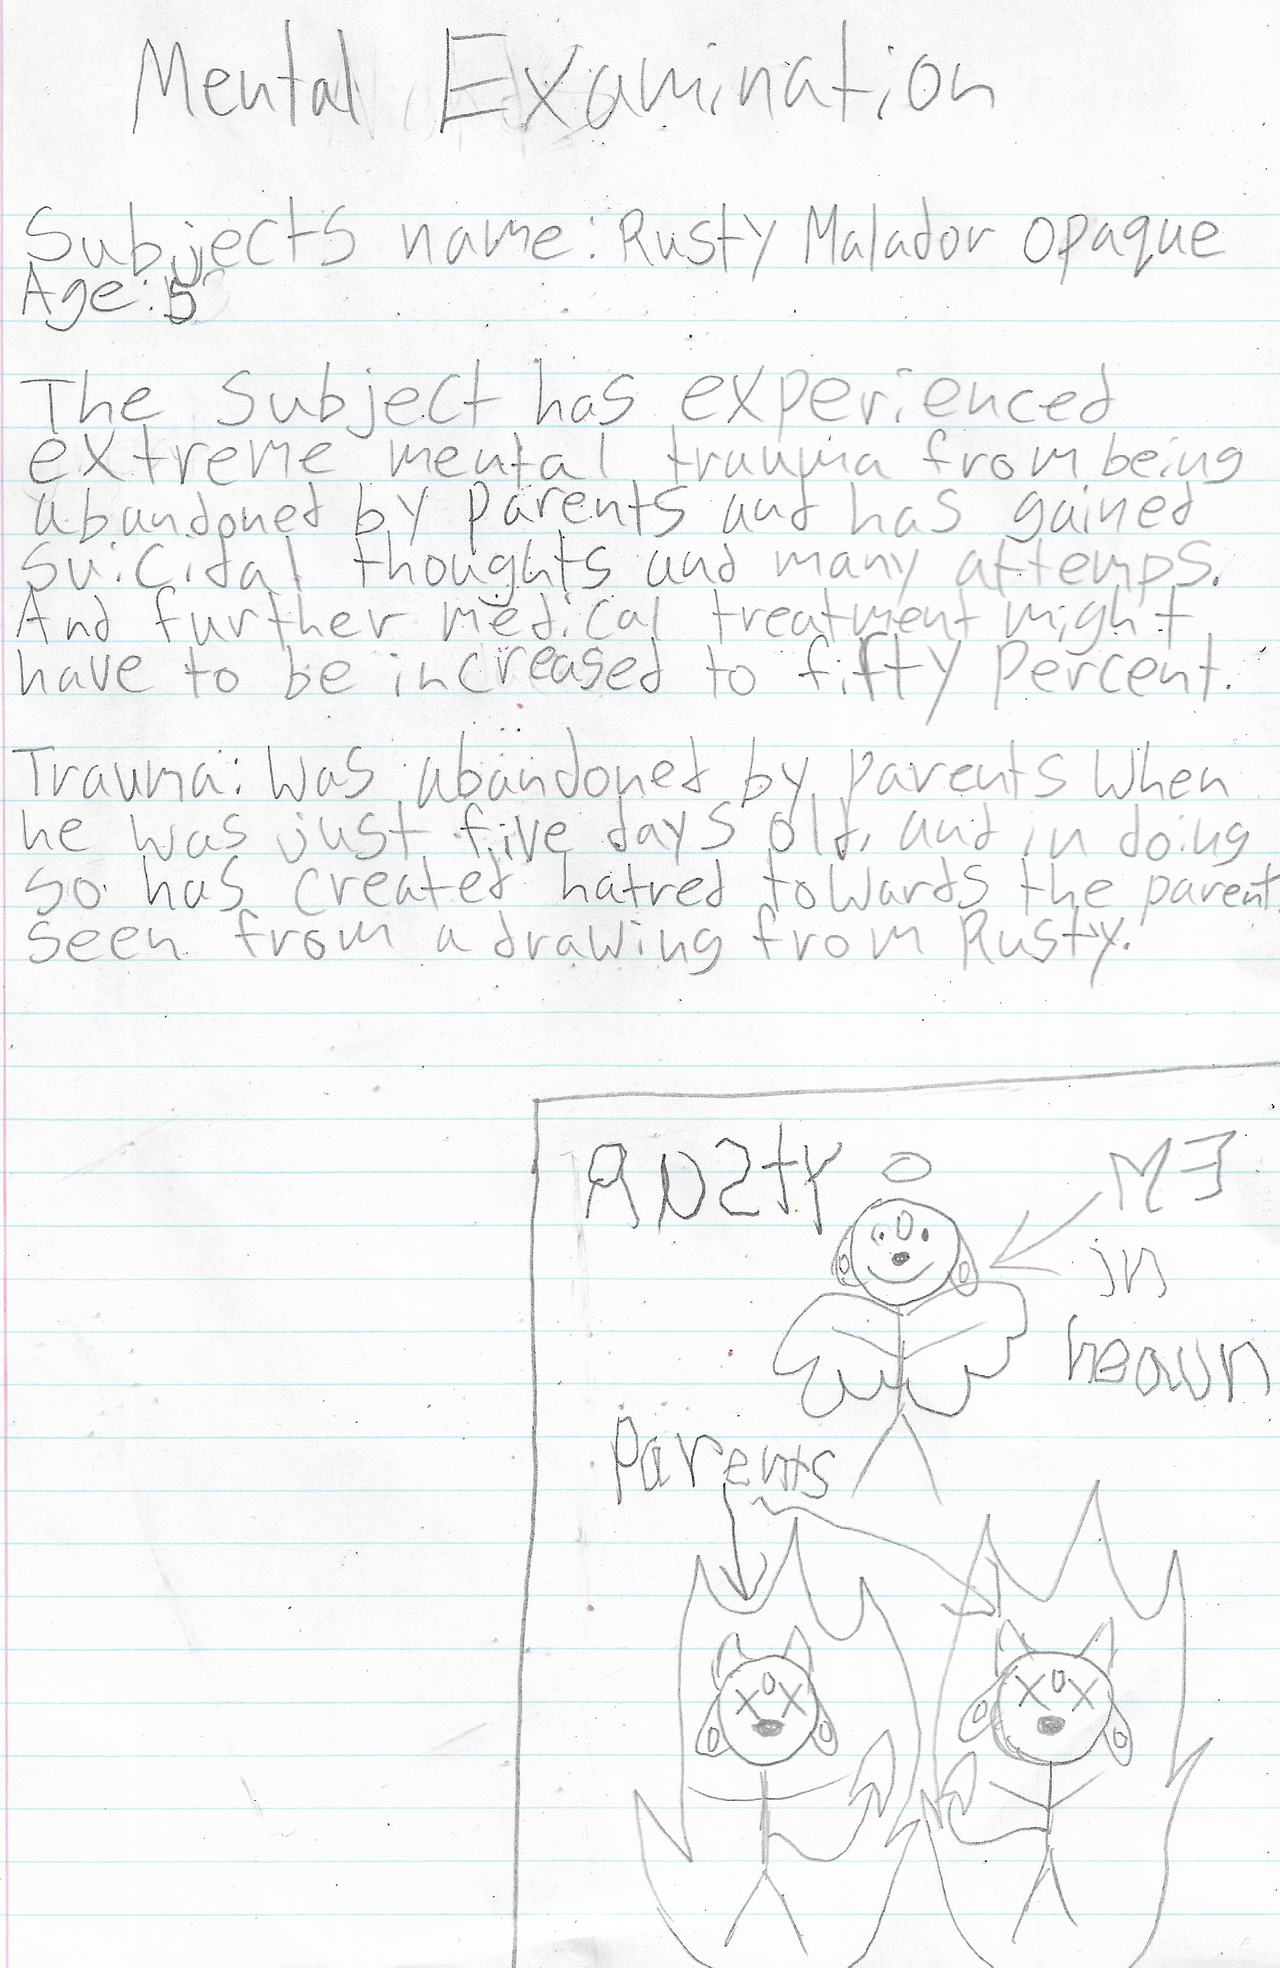 Mental Examination
Subjects name: Rusty Malador Opaque
Age: 5
The Subject has experienced
extreme mental trauma from being
abandoned by parents and has gained
Suicidal thoughts and many attemps.
And further medical treatment might
have to be increased to fifty percent.
Trauma: Was abandoned by parents when
he was just five days old, and in doing
so has created hatred towards the parent
seen from a drawing from Rusty.
RUSTY
ME
in
heavn
Parents